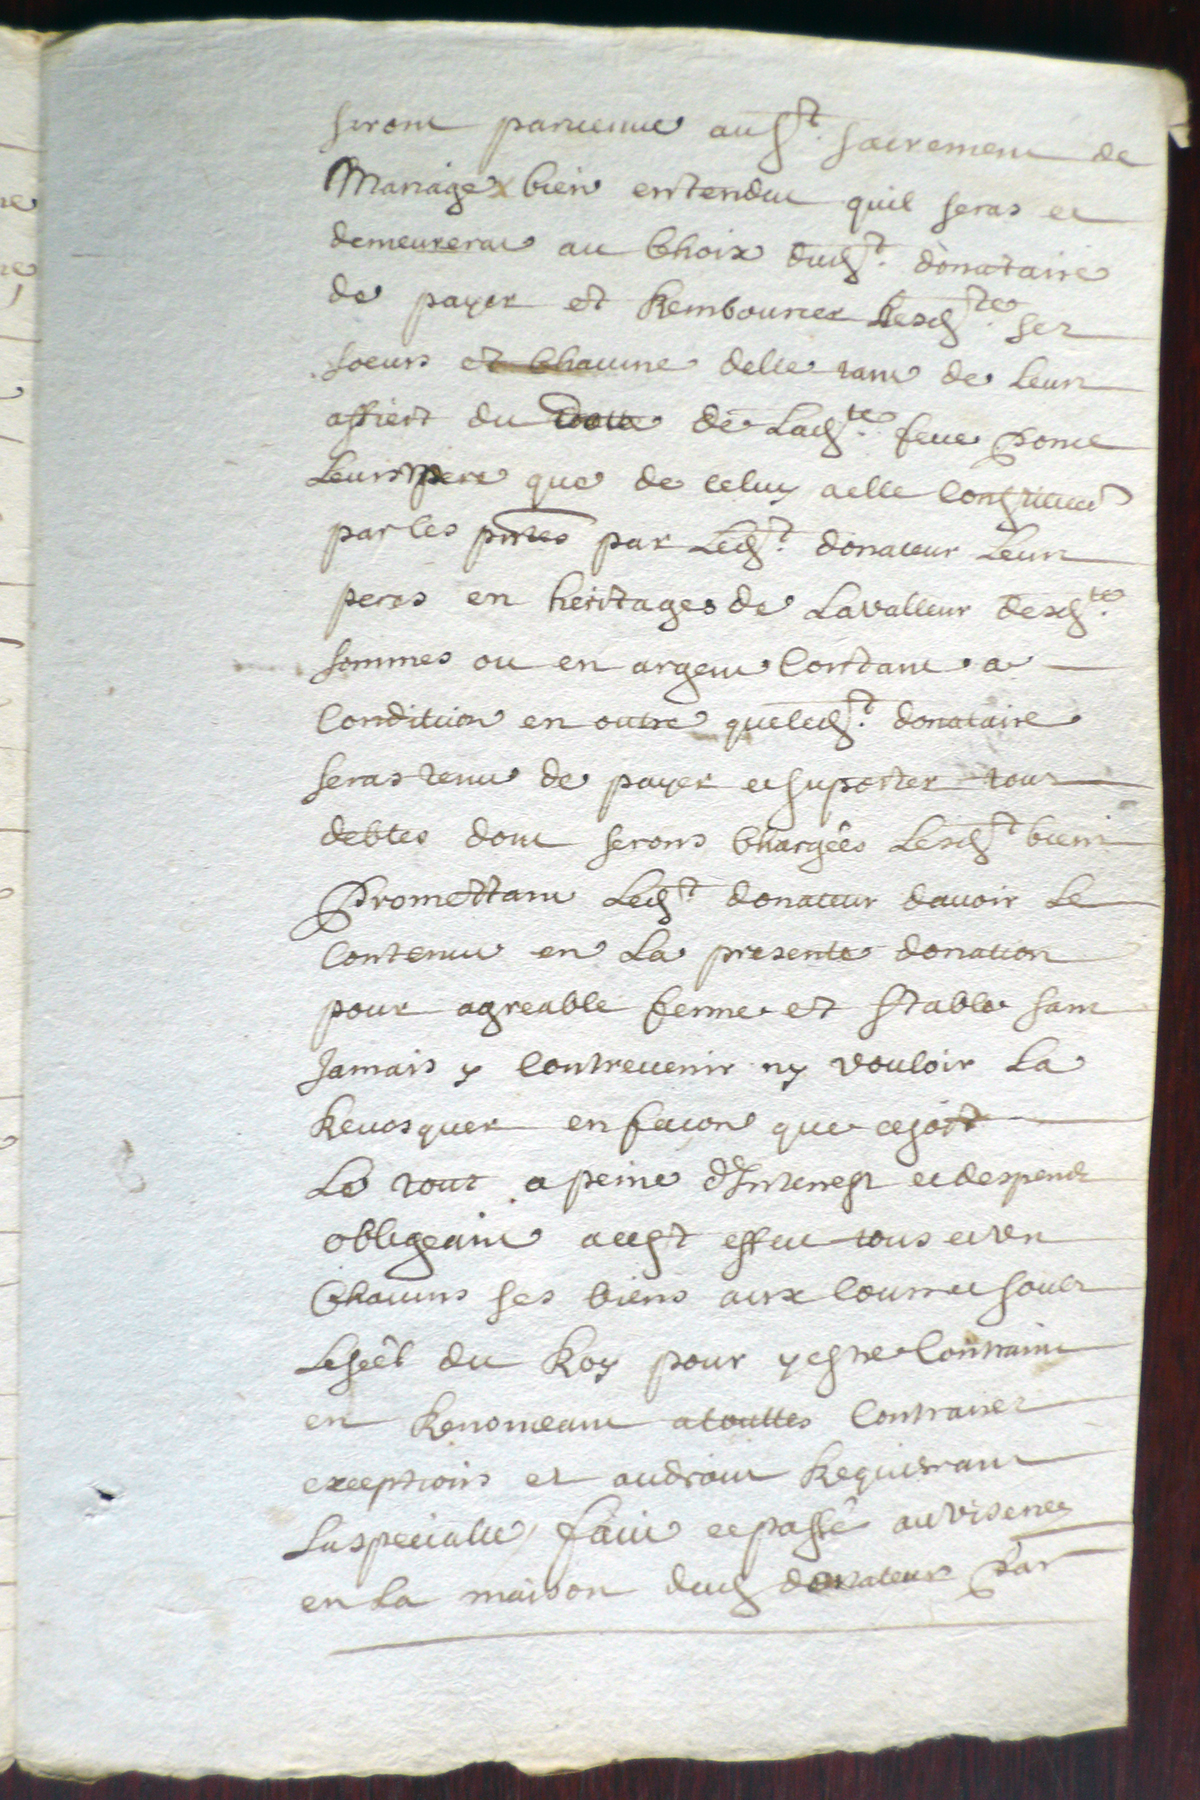 seront parvenue aud.t sacrement de
Mariage bien entendu quil seras et
demeurerat au Choix dud.t donataire
de payer et Rembourcer Lesd.tes ses
soeurs et Chacune delle tant de leurs
affiert du dotte de Lad.te feue
Leurs mere que de celuy a elle Constitué
par les pntes par Led.t donateur Leurs
peres en heritages de La valleur desd.tes
sommes ou en argent Contant a
Condition en outre que led.t donataire
seras tenu de payer et suporter tous
debtes dont serons Chargées Lesd.t biens
Promettant Led.t donateur davoir Le
Contenu en La presente donation
pour agreable ferme et stable sans
Jamais y Contrevenir ny vouloir La
Revosquer en facon que ce soit
Le tout a peine d'Interest et despends
obligeant a cest effect tous et un
Chacuns ses biens aux Cours et soubz
Le séel du Roy pour y estre Contraint
en Renonceant a touttes Contraires
exceptions et au droit Requierant
La specialle, fait et passé au
en La maison dud donateur Par